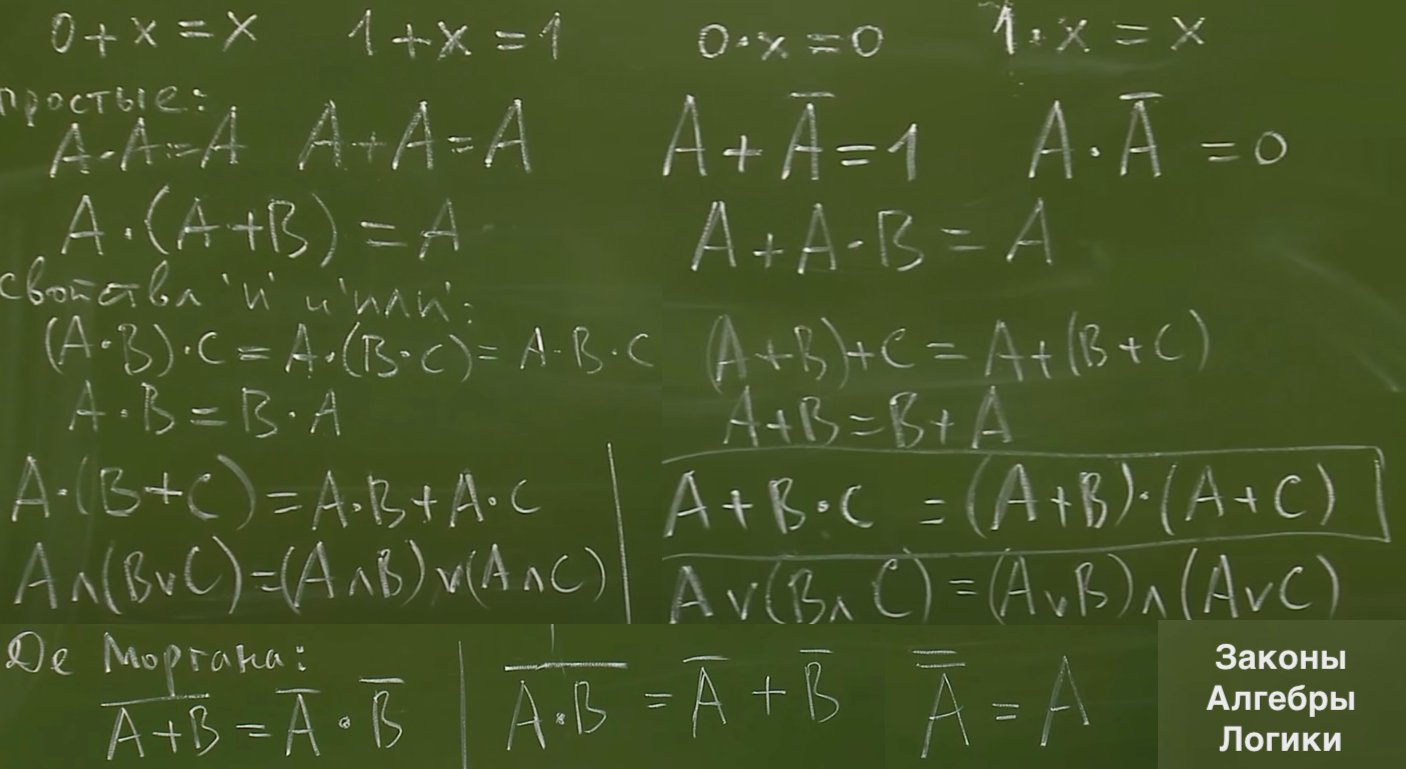 0+x=x 1+x=1 0·x=0 1·x=x
простые:
A·A=A A+A=A A+A̅=1 A·A̅=0
A·(A+B)=A A+A·B=A
свойства "и" и "или":
(A·B)·C=A·(B·C)=A·B·C (A+B)+C=A+(B+C)
A·B=B·A A+B=B+A
A·(B+C)=A·B+A·C A+B·C=(A+B)·(A+C)
A∧(B∨C)=(A∧B)∨(A∧C) A∨(B∧C)=(A∨B)∧(A∨C)
Де Моргана:
A̅+̅B̅=A̅·B̅ A̅·̅B̅=A̅+B̅ A̿=A
Законы
Алгебры
Логики